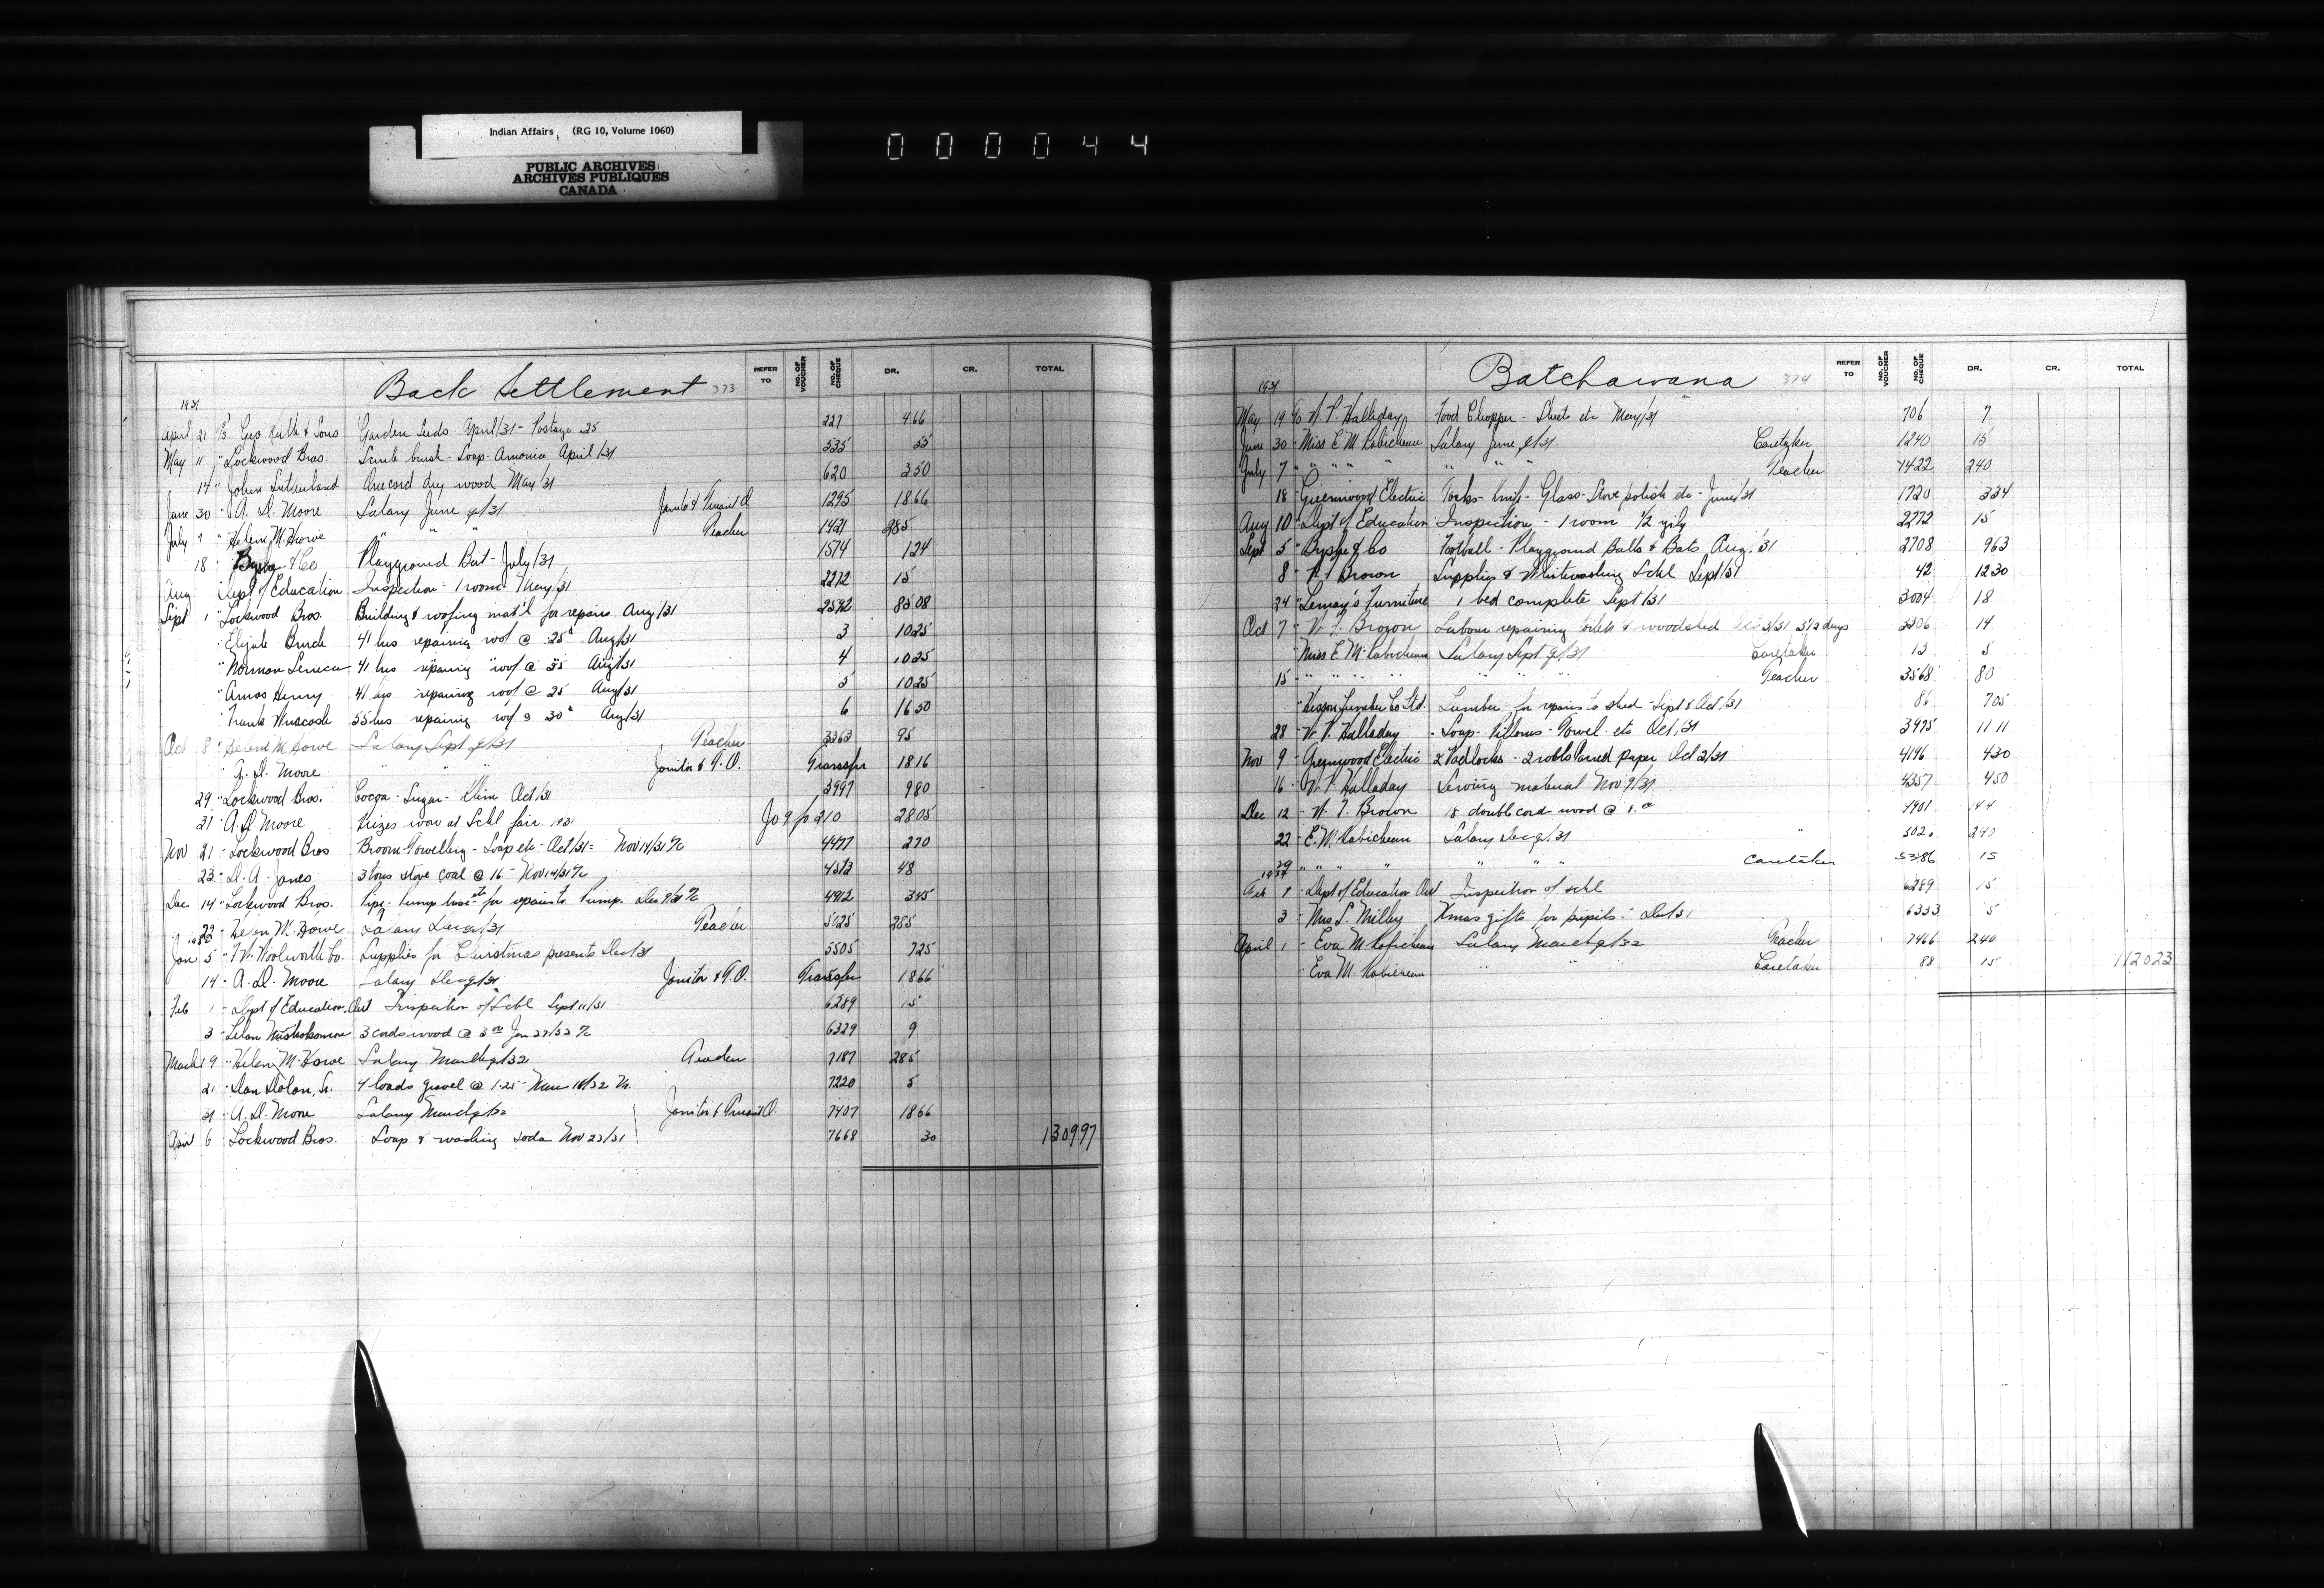 Indian Affairs (RG 10, Volume 1060)
PUBLIC ARCHIVES
ARCHIVES PUBLIQUES
CANADA
000044
Back Settlement 373
REFER TO NO. OF VOUCHER NO. OF CHEQUE DR. CR. TOTAL
1931
April 21 To Geo Keith & Sons Garden Seeds April/31 - Postage 25 227 466
May 11 " Lockwood Bros. Scrub brush - Soap - Amonia April/31 535 55
14 " John Sutherland One cord dry wood May/31 620 350
June 30 " A. D. Moore Salary June q/31 1295 1866
July 7 " Helene M. Howe " " Teacher 1421 285
18 " & Co Playground Bat - July/31 1574 124
Aug Dept of Education Inspection - 1 room May/31 2272 15
Sept 1 " Lockwood Bros. Building & roofing mat'l for repairs Aug/31 2592 8508
" Elijah Burch 41 hrs repairing roof @ 25¢ Aug/31 3 1025
" Norman Seneca 41 hrs repairing roof @ 25 Aug/31 4 1025
" Amos Henry 41 hrs repairing roof @ 25 Aug/31 5 1025
" Frank 55 hrs repairing roof @ 30¢ Aug/31 6 1650
Oct 8 " Helene M. Howe Salary Sept q/31 Teacher 3363 95
" A. D. Moore " " Janitor & T.O. Transfer 1816
29 " Lockwood Bros. Cocoa - Sugar - Klim Oct/31 3997 980
31 " A. D. Moore Prizes won at Schl fair 1931 Jo 9 fo 210 2805
Nov 21 " Lockwood Bros Broom - Towelling - Soap etc - Oct/31 = Nov 14/31 4477 270
23 " D. A. Jones 3 tons stove coal @ 16 - Nov 14/31 4573 48
Dec 14 " Lockwood Bros. Pipe - Pump base etc for repairs to Pump. Dec 9/31 4912 345
22 " Helen M. Howe Salary Dec q/31 Teacher 5025 285
1932
Jan 5 " F. W. Woolworth Co. Supplies for Christmas presents Dec/31 5505 725
14 " A. D. Moore Salary Dec q/31 Janitor & T.O. Transfer 1866
Feb 1 " Dept of Education, Ont Inspection of Schl Sept 11/31 6289 15
3 " 3 cords wood @ 3.00 Jan 27/32 6329 9
March 9 " Helene M. Howe Salary March q/32 Teacher 7187 285
21 " Dan Dolan, Sr. 4 loads gravel @ 1.25 - Mar 18/32 7220 5
31 " A. D. Moore Salary March q/32 Janitor & Truant O. 7407 1866
April 6 " Lockwood Bros. Soap & washing soda Nov 23/31 7668 30 130997
Batchawana 374
REFER TO NO. OF VOUCHER NO. OF CHEQUE DR. CR. TOTAL
1931
May 19 To W. P. Halladay Food Chopper - Sheets etc May/31 706 7
June 30 " Miss E. M. Robicheau Salary June q/31 Caretaker 1240 15
July 7 " " " " " " " Teacher 1422 240
18 " Greenwood Electric Forks - knife - Glass - Stove polish etc - June/31 1720 334
Aug 10 " Dept of Education Inspection - 1 room 1/2 yrly 2272 15
Sept 5 " & Co Football - Playground Balls & Bats Aug. '31 2708 963
8 " Brown Supplies & Whitewashing Schl Sept/31 42 1230
24 " Lemay's Furniture 1 bed complete Sept/31 3004 18
Oct 7 " Brown Labour repairing toilets & woodshed Oct 3/31 3 1/2 days 3306 14
" Miss E. M. Robicheau Salary Sept q/31 Caretaker 13 5
15 " " " " " " " Teacher 3568 80
" Hesson Lumber Co Ltd. Lumber for repairs to shed - Sept & Oct/31 86 705
28 " W. P. Halladay Soap - Pillows - Towel etc Oct/31 3975 1111
Nov 9 " Greenwood Electric 2 Padlocks - 2 rolls tarred paper Oct 2/31 4196 430
16 " W. P. Halladay Sewing material Nov 9/31 4357 450
Dec 12 " Brown 18 double cord wood @ 8.00 4901 144
22 " E. M. Robicheau Salary Dec q/31 " 240
29 " " " " " " " Caretaker 5386 15
1932
Feb 1 " Dept of Education Ont Inspection of schl 6289 15
3 " Mrs S. Milley Xmas gifts for pupils - Dec/31 6333 5
April 1 " Eva M. Robicheau Salary March q/32 Teacher 7466 240
" Eva M. Robicheau " " " Caretaker 88 15 112023